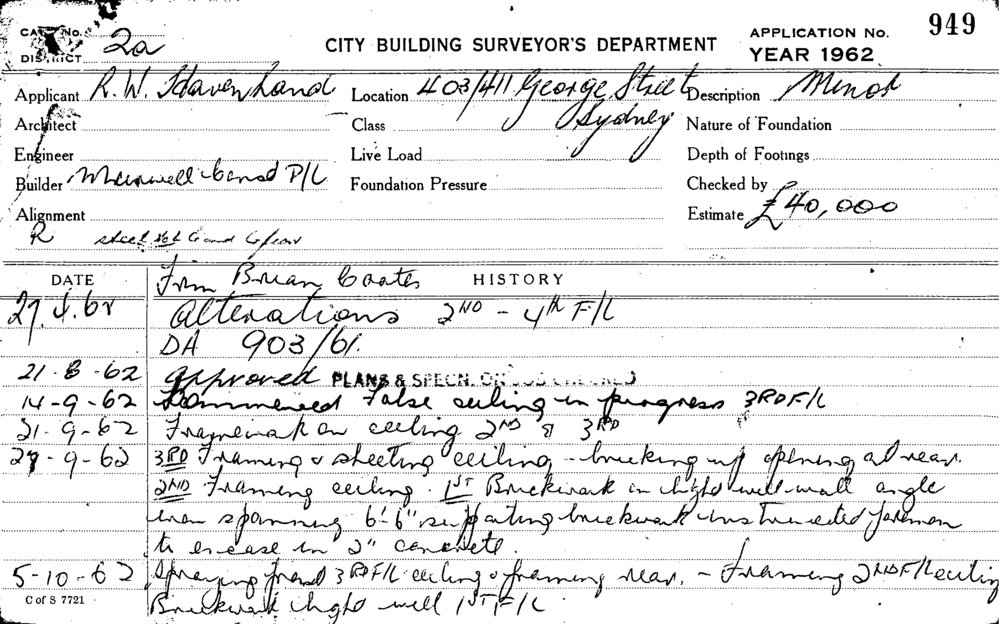 949
CARD No.
DISTRICT 2a
CITY BUILDING SURVEYOR'S DEPARTMENT
APPLICATION No.
YEAR 1962
Applicant R. W. Havenhand
Location 403/411 George Street Sydney
Description Minor
Architect
Class
Nature of Foundation
Engineer
Live Load
Depth of Footings
Builder Maxwell Const P/L
Foundation Pressure
Checked by
Alignment
Estimate £40,000
R
DATE
From Brian Coates
HISTORY
27.4.62 Alterations 2ND - 4th F/L
DA 903/61.
21-8-62 Approved PLANS & SPECN. ON JOB CHECKED
14-9-62 Commenced False ceiling in progress 3RD F/L
21-9-62 Framework on ceiling 2ND & 3RD
27-9-62 3RD Framing & sheeting ceiling - bricking up opening at rear.
2ND Framing ceiling. 1ST Brickwork in light well wall angle
iron spanning 6'-6" supporting brickwork instructed foreman
to encase in 2" concrete.
5-10-62 Spraying 3RD F/L ceiling & framing rear. - Framing 2ND F/L ceiling
Brickwork light well 1ST F/L
C of S 7721